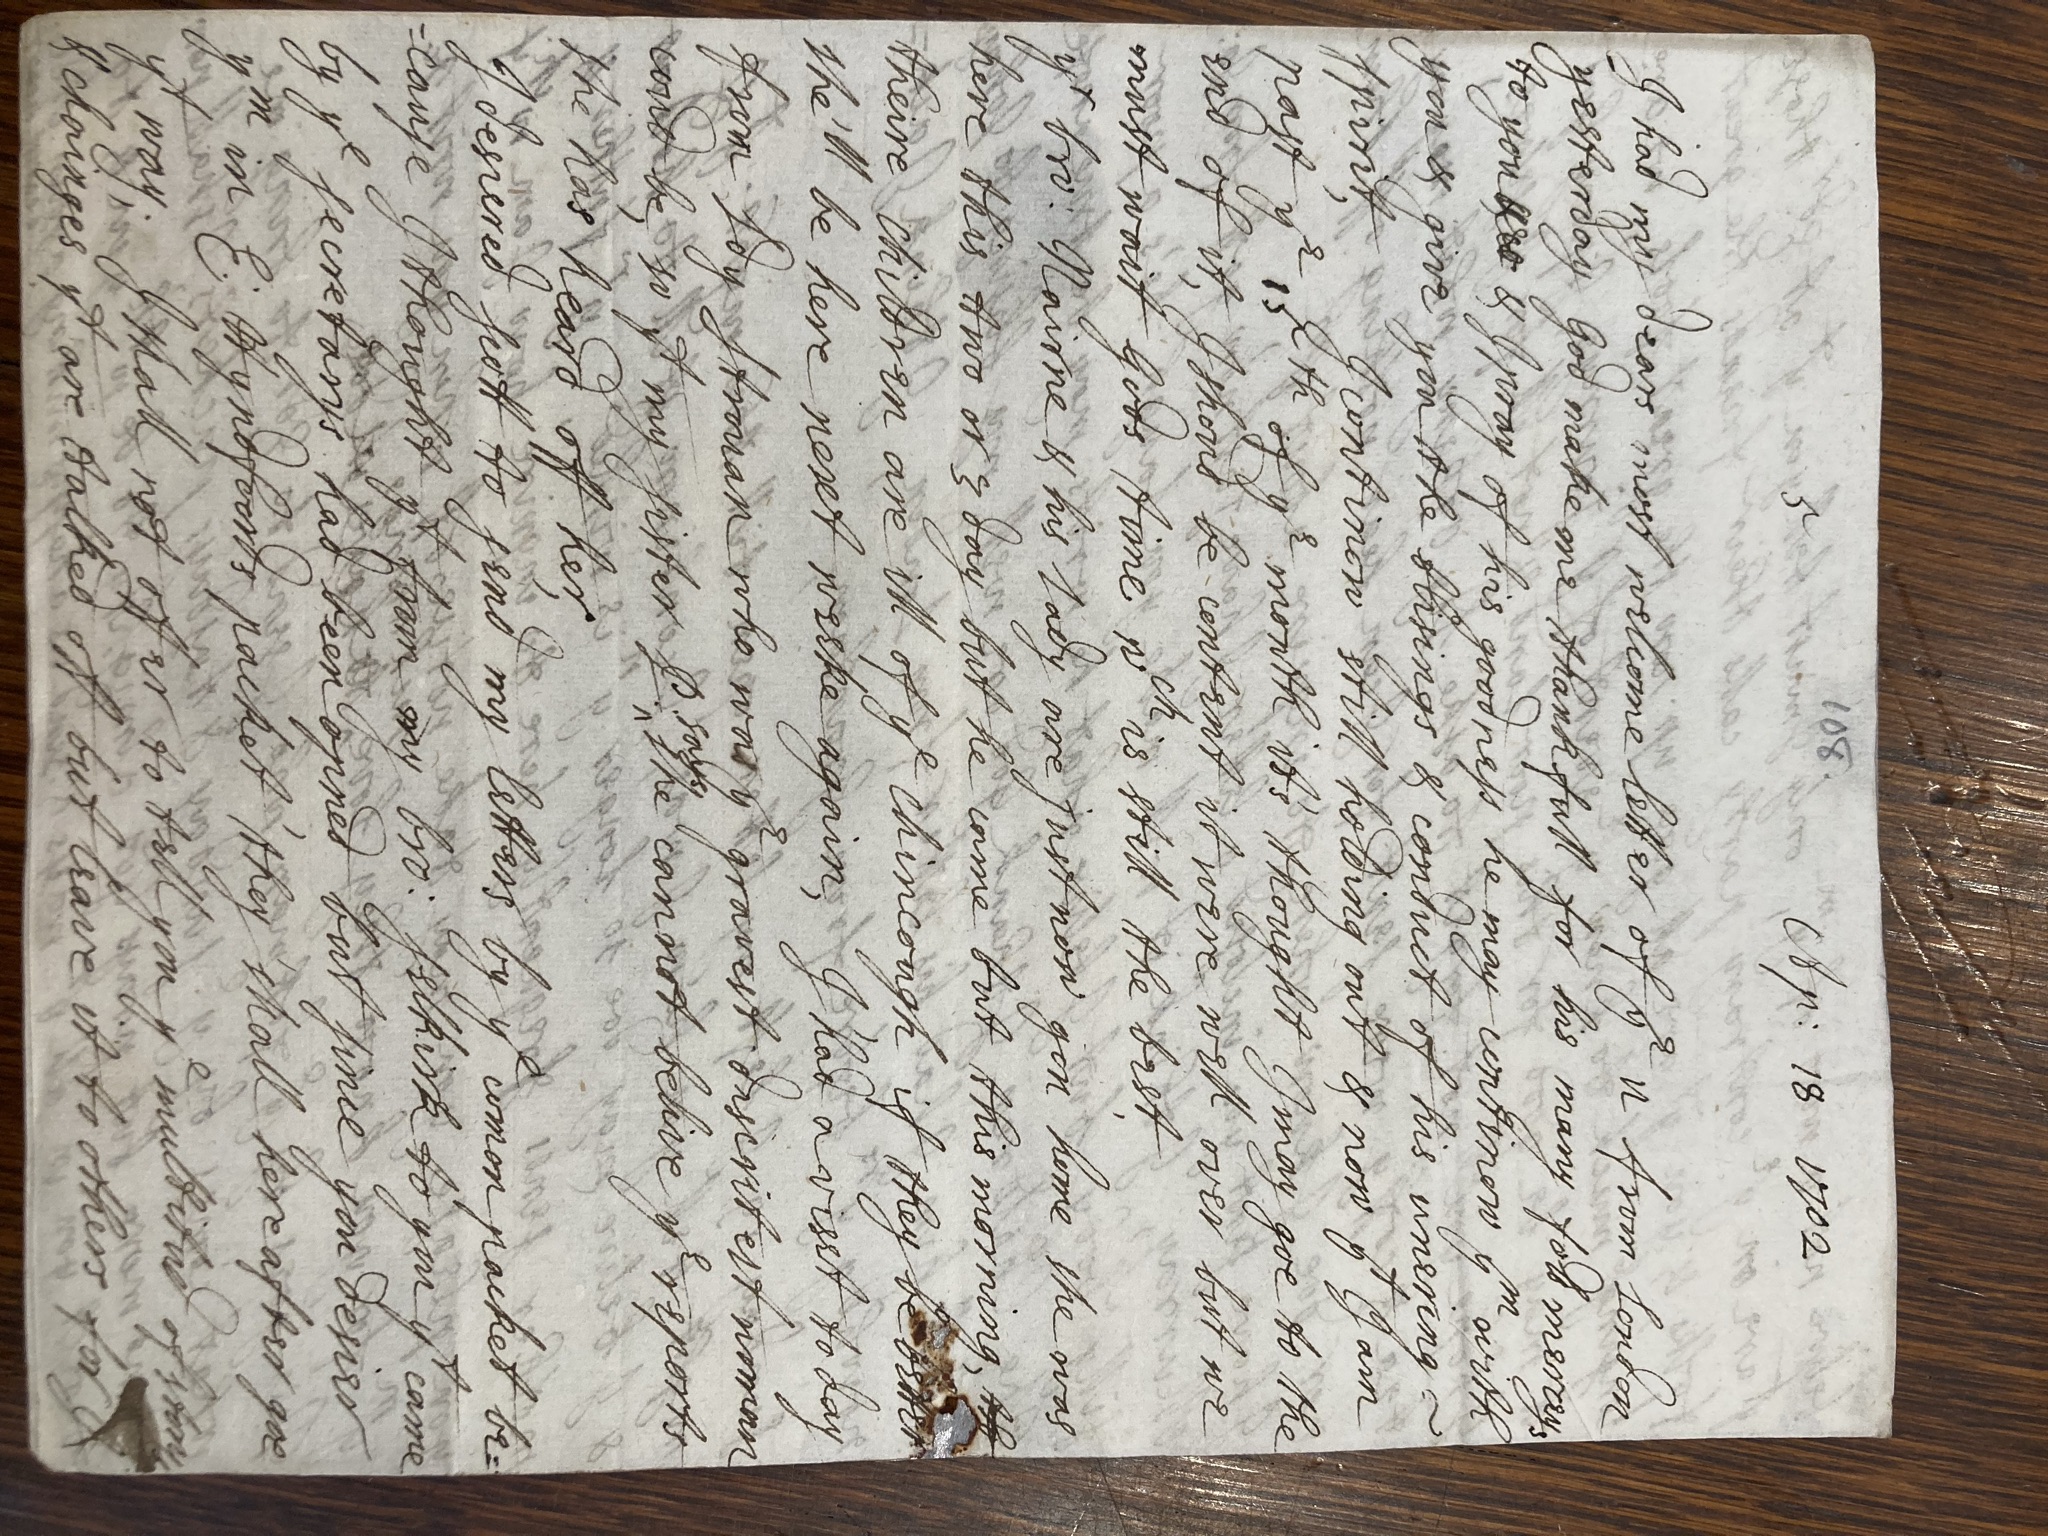 108.
5 Ap: 18 1702
I had my dears most welcome letter of ye 11 from London
yesterday God make me thankfull for his many fold mercys
to you & I pray of his goodness he may continow ym with
you & give you the blisings & conduct of his unering ~
spirit, I continow still holding out & now yt I am
past ye 15th of ye month it's thought I may goe to the
end of it, I shoud be content it were well over but we
must wait Gods time wch is still the best,
yr bro: Nairne & his Lady are just now gon home she was
here this two or 3 day but he came but this morning, th
theire children are ill of ye chincough, if they be better
she'll be here next weeke again, I had a viset to day
from Ldy Strouan who was ye gravest discritest woman
coud be, so yt my sister P: says she cannot belive ye reports
she has heard off her,
I desiered scott to send my letters by ye comon packet be=
=cause I thought yt from my bro: selkirk to you yt came
by ye secretarys had been opned, but since you desier
ym in E: Hyndfoords packet they shall hereafter goe
yt way; I shall not offer to tell you ye multitud of storys
& chainges yt are talked off but leave it to others for I